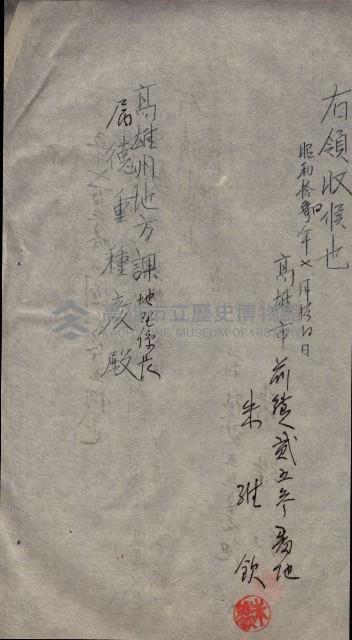 右領收候也
昭和拾年七月拾日
高雄市前鎮貳五參番地
朱維欽
高雄州地方課地理係長
属德重種彦殿
高雄市立歷史博物館
KAOHSIUNG MUSEUM OF HISTORY